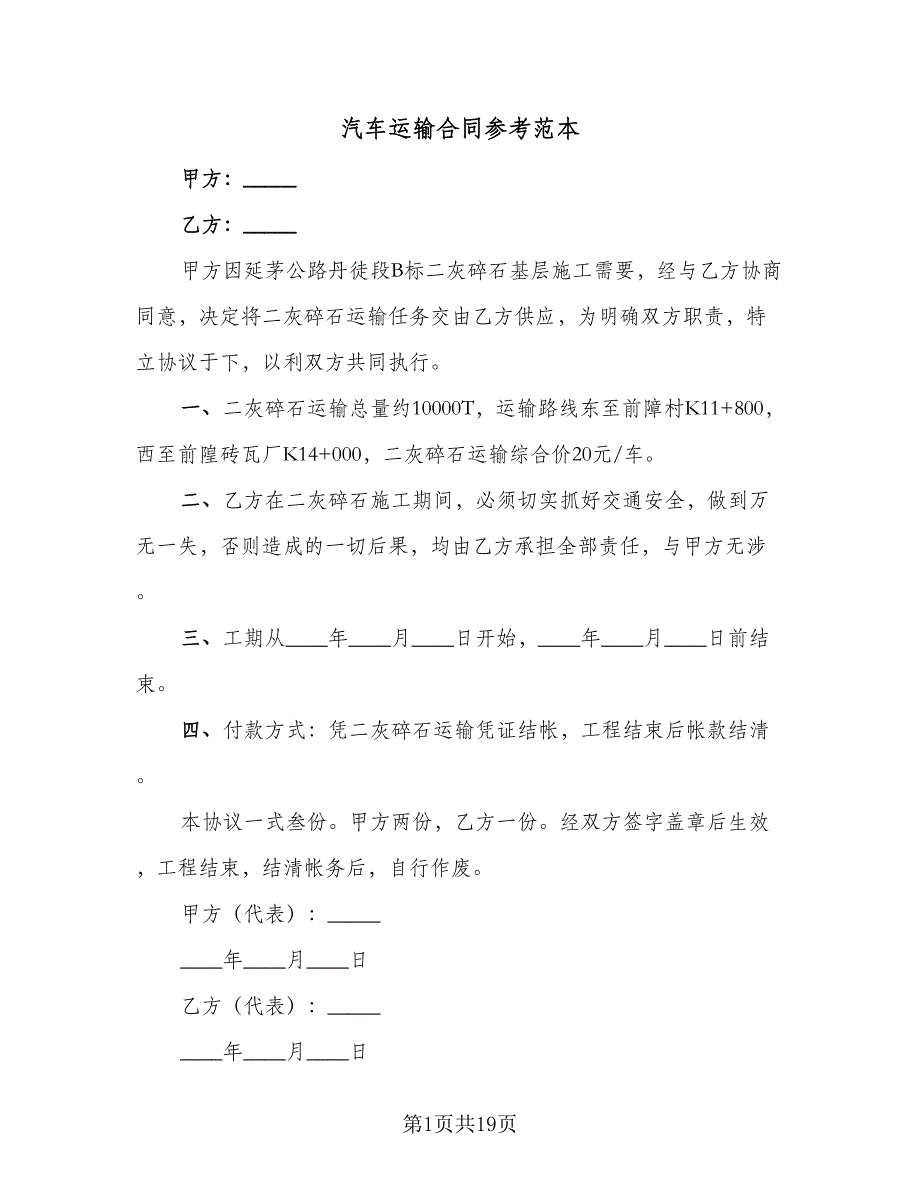 汽车运输合同参考范本
甲方：_____
乙方：_____
甲方因延茅公路丹徒段B标二灰碎石基层施工需要，经与乙方协商
同意，决定将二灰碎石运输任务交由乙方供应，为明确双方职责，特
立协议于下，以利双方共同执行。
一、二灰碎石运输总量约10000T，运输路线东至前障村K11+800，
西至前隍砖瓦厂K14+000，二灰碎石运输综合价20元/车。
二、乙方在二灰碎石施工期间，必须切实抓好交通安全，做到万
无一失，否则造成的一切后果，均由乙方承担全部责任，与甲方无涉
。
三、工期从____年____月____日开始，____年____月____日前结
束。
四、付款方式：凭二灰碎石运输凭证结帐，工程结束后帐款结清
。
本协议一式叁份。甲方两份，乙方一份。经双方签字盖章后生效
，工程结束，结清帐务后，自行作废。
甲方（代表）：_____
____年____月____日
乙方（代表）：_____
____年____月____日
第1页共19页